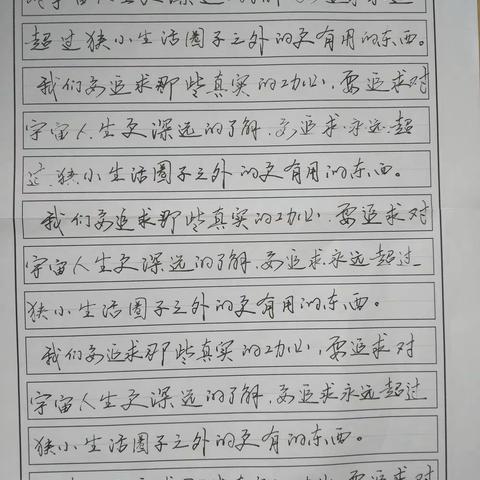 宇宙人生更深远的
超过狭小生活圈子之外的更有用的东西。
我们要追求那些真实的功业,要追求对
宇宙人生更深远的了解,要追求永远超
过狭小生活圈子之外的更有用的东西。
我们要追求那些真实的功业,要追求对
宇宙人生更深远的了解,要追求永远超过
狭小生活圈子之外的更有用的东西。
我们要追求那些真实的功业,要追求对
宇宙人生更深远的了解,要追求永远超过
狭小生活圈子之外的更有的东西。
要追求对